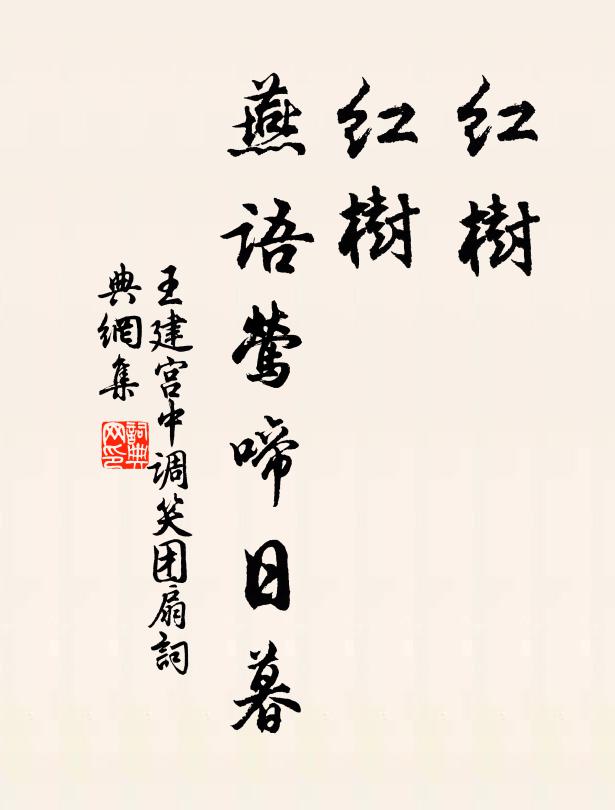 红樹
红樹
燕语莺啼日暮
王建宫中调笑团扇詞
典網集
詞典网印